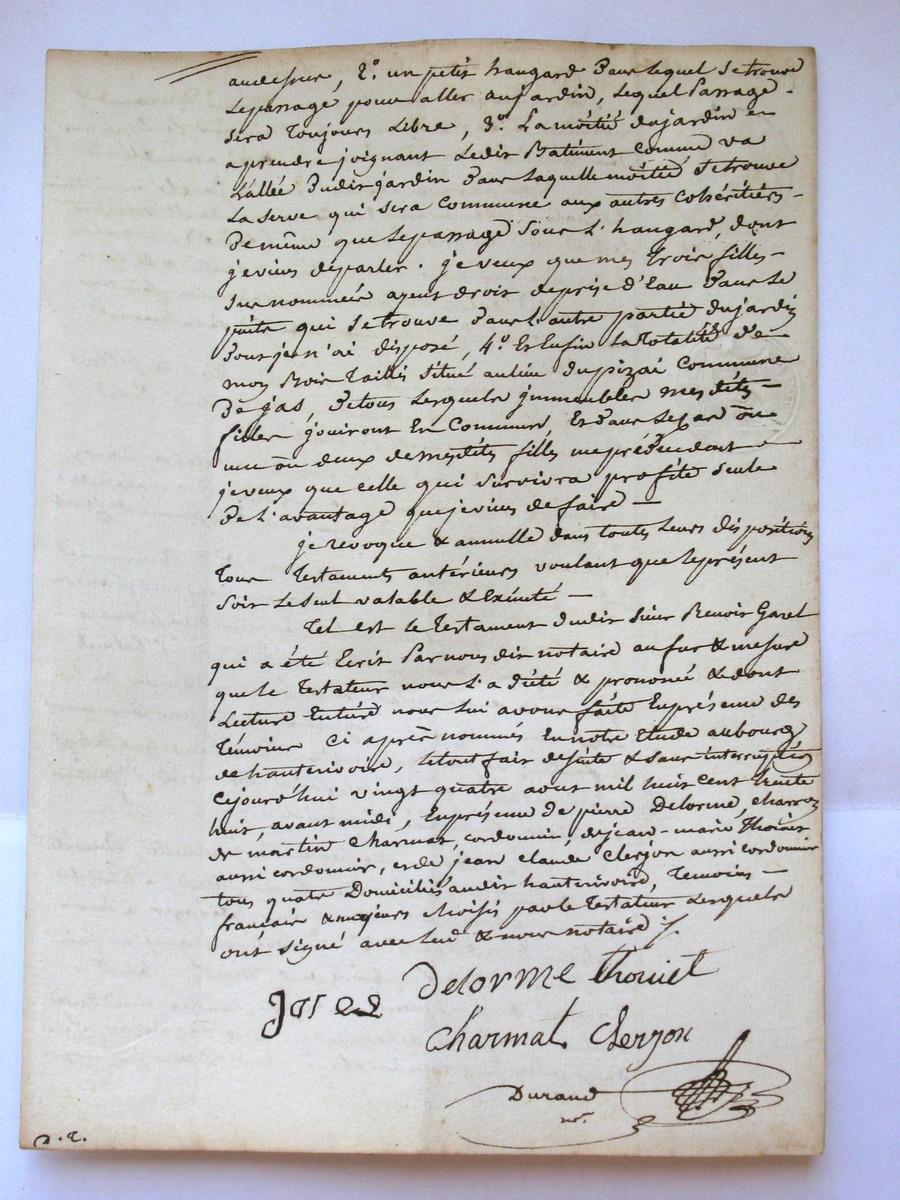 audessus, 2° un petit hangard dans lequel se trouve
le passage pour aller au jardin, lequel Passage
sera Toujours Libre, 3° La moitié du jardin en
aprendre joignant Ledit Batiment comme va
L'allée dudit jardin dans laquelle moitié se trouve
La serve qui sera commune aux autres cohéritiers
de même que le passage sous L'hangard, dont
je viens de parler. je veux que mes trois filles
sus nommées ayent droit de prise d'Eau dans le
puits qui se trouve dans L'autre partie du jardin
dont je n'ai disposé, 4° Et Enfin La Totalité de
mon Bois Taillis situé au lieu du pizai Commune
de jas, de tous Lesquels immeubles mesdites
filles jouiront En Commun, Et dans le cas où
une où deux de mesdites filles me prédécedent
je veux que celle qui survivra profite seule
de L'avantage que je viens de faire —
je revoque & annulle dans toutes Leurs dispositions
Tous Testaments antérieurs voulant que le présent
soit Le seul valable & Exécuté —
Tel est le Testament dudit sieur Benoit Garel
qui a été Ecrit Par nous dit notaire au fur & mesure
que le Testateur nous L'a dicté & prononcé & dont
Lecture Entière nous lui avons faite En présence des
Témoins Ci après nommés En notre Etude au bourg
de hauterivoire, le tout fait de suite & sans interruption
Cejourd'hui vingt quatre aout mil huit cent trente
huit, avant midi, En présence de pierre Delorme, charron
de martin Charmat, cordonnier, de jean-marie Thoviet
aussi cordonnier, et de jean claude Clerjon aussi cordonnier
tous quatre Domiciliés audit hauterivoire, Temoins
français & majeurs choisis par le Testateur Lesquels
ont signé avec lui & nous notaire ./.
Delorme thoviet
Charmat Clerjon
Durand
nre.